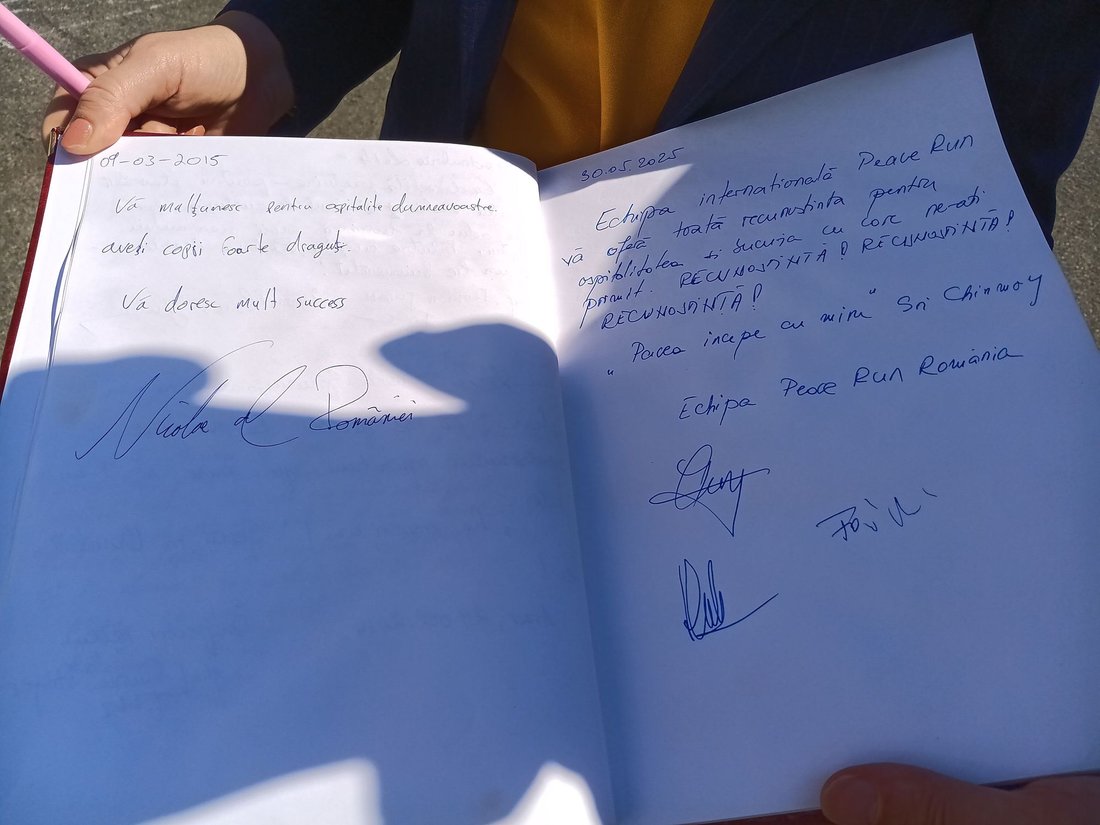 09-03-2015
Vă malțumesc pentru ospitalite dumneavoastre.
aveți copii foarte draguț.
Vă doresc mult success
Nicolae al României
30.05.2025
Echipa internațională Peace Run
vă oferă toată recunoștința pentru
ospitalitatea și bucuria cu care ne-ați
primit. RECUNOȘTINȚĂ! RECUNOȘTINȚĂ!
RECUNOȘTINȚĂ!
"Pacea începe cu mine" Sri Chinmoy
Echipa Peace Run România